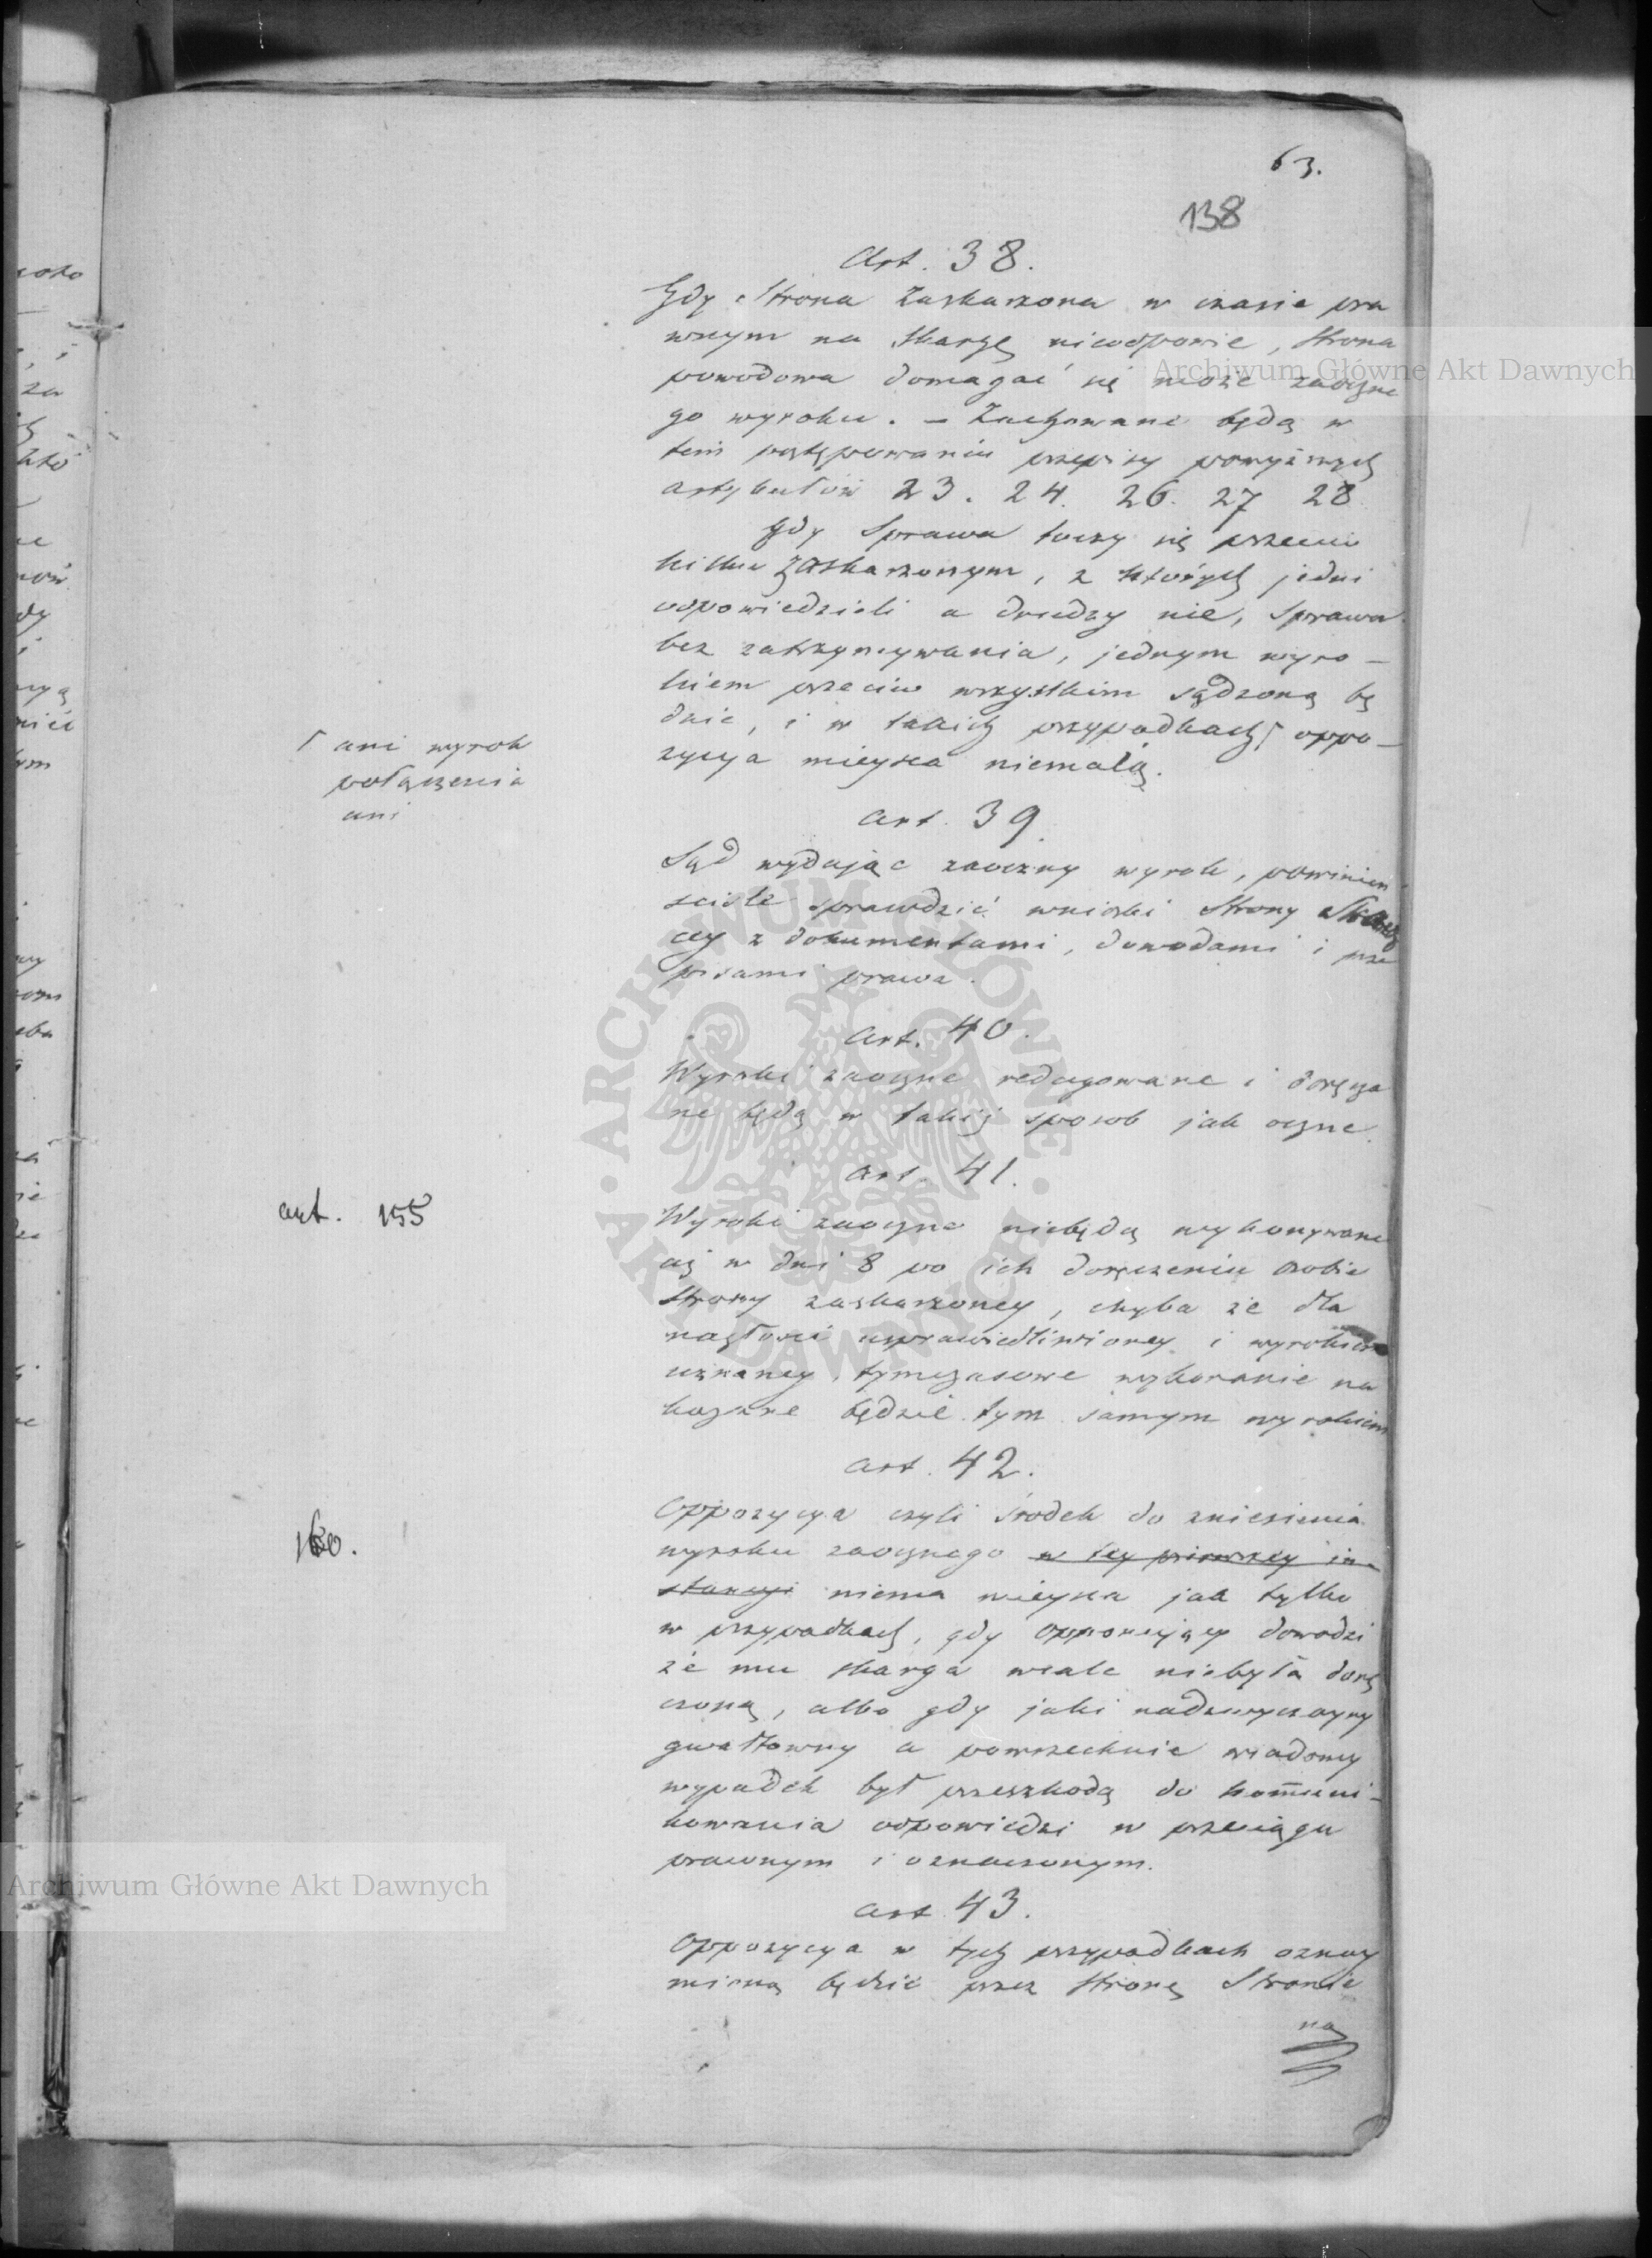 63.
138
Art. 38.
Gdy Strona Zaskarzona w czasie pra
wnym na skargę nieodpowie, Strona
powodowa domagać się może zaoczne
go wyroku. – Zachowane będą w
tem postępowaniu przepisy powyższych
artykułów 23. 24. 26. 27 28
Gdy Sprawa toczy się przeciw
kilku Zaskarzonym, z których jedni
odpowiedzieli a drudzy nie, Sprawa
bez zatrzymywania, jednym wyro –
kiem przeciw wszystkim sądzoną bę
dzie, i w takich przypadkach Γ oppo –
zycya mieysca niemaią.
Γ ani wyrok
połączenia
ani
art. 39.
Sąd wydając zaoczny wyrok, powinien
scisle sprawdzić wnioski Strony
cey z dokumentami, dowodami i prze
pisami prawa.
Art. 40.
Wyroki zaoczne redagowane i doręcza
ne będą w takiż sposob jak oczne.
art. 41.
art. 155
Wyroki zaoczne niebędą wykonywane
aż w dni 8 po ich doręczeniu osobie
Strony zaskarzoney, chyba że dla
nagłości usprawiedliwioney i wyrokiem
uznaney, tymczasowe wykonanie na
kazane będzie tym samym wyrokiem
art. 42.
160.
Oppozycya czyli środek do zniesienia
wyroku zaocznego w tey pierwszey in–
stancyi niema mieysca jak tylko
w przypadkach, gdy opponujący dowodzi
że mu skarga wcale niebyła dorę
czoną, albo gdy jaki nadzwyczayny
gwałtowny a powszechnie wiadomy
wypadek był przeszkodą do kom̄uni–
kowania odpowiedzi w przeciągu
prawnym i oznaczonym.
art. 43.
Oppozycya w tych przypadkach oznay
mioną będzie przez Stronę Stronie
na
Archiwum Główne Akt Dawnych
Archiwum Główne Akt Dawnych
· ARCHIWUM GŁÓWNE · AKT DAWNYCH